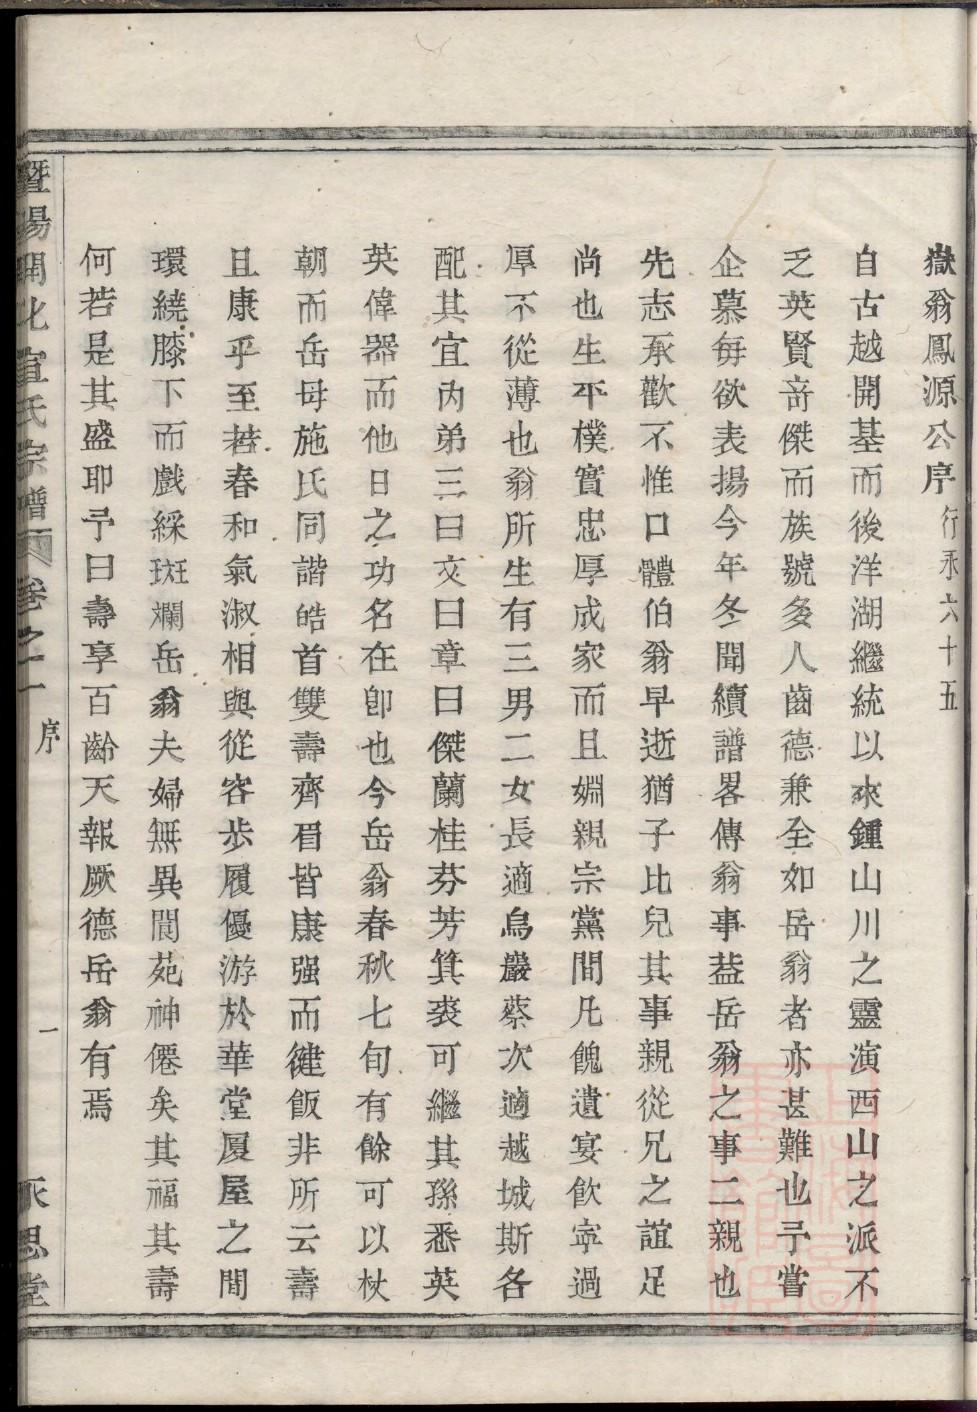 嶽翁鳳源公序 行承六十五
自古越開基而後洋湖繼統以來鍾山川之靈演西山之派不
乏英賢竒傑而族號多人齒德兼全如岳翁者亦甚難也予嘗
企慕每欲表揚今年冬聞續譜畧傳翁事葢岳翁之事二親也
先志承歡不惟口體伯翁早逝猶子比兒其事親從兄之誼足
尚也生平樸實忠厚成家而且婣親宗黨間凡餽遺宴飲寧過
厚不從薄也翁所生有三男二女長適鳥巖蔡次適越城斯各
配其宜內弟三曰文曰章曰傑蘭桂芬芳箕裘可繼其孫悉英
英偉器而他日之功名在卽也今岳翁春秋七旬有餘可以杖
朝而岳母施氏同諧皓首雙壽齊眉皆康强而健飯非所云壽
且康乎至若春和氣淑相與從容步履優游於華堂厦屋之間
環繞膝下而戲綵斑斕岳翁夫婦無異閬苑神僊矣其福其壽
何若是其盛耶予曰壽享百齡天報厥德岳翁有焉
暨陽開化宣氏宗譜 卷之一 序 一 永思堂